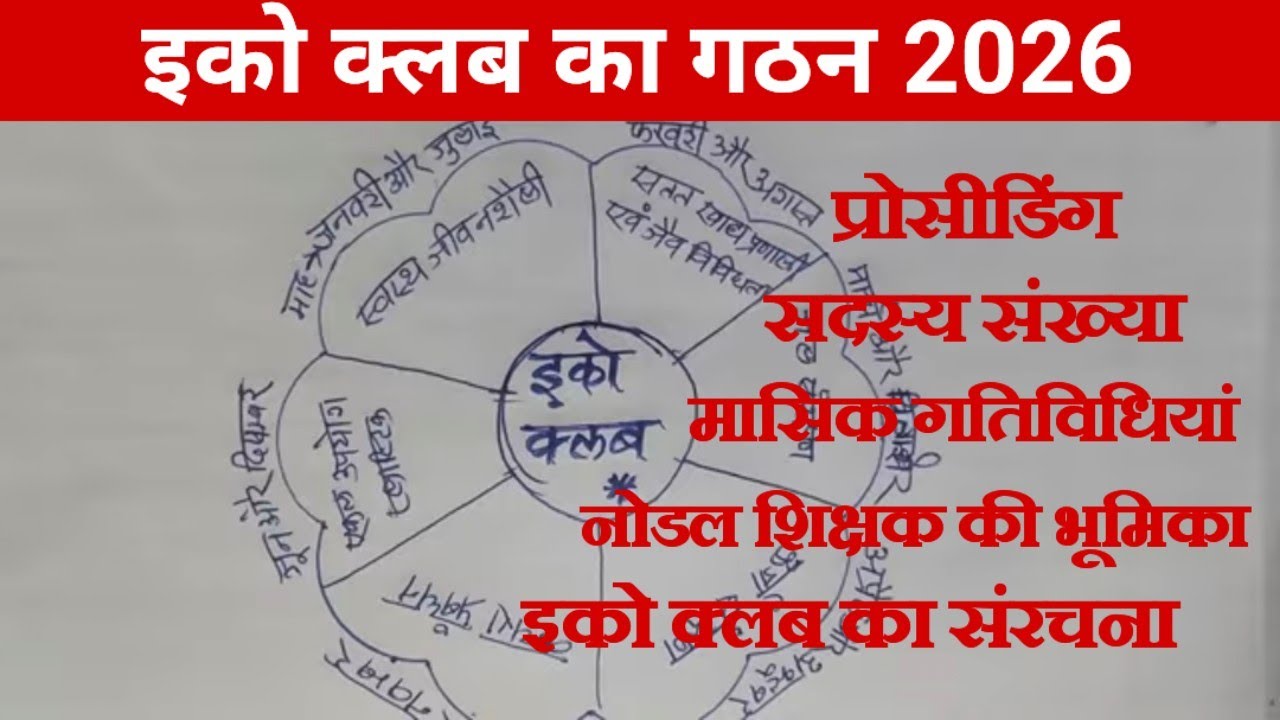 इको क्लब का गठन 2026
माह → जनवरी और जुलाई
फरवरी और अगस्त
स्वास्थ जीवनशैली
सतत खाद्य प्रणाली
एवं जैव विविधता
प्रोसीडिंग
सदस्य संख्या
मासिक गतिविधियां
नोडल शिक्षक की भूमिका
इको क्लब का संरचना
इको
क्लब
जून और दिसम्बर
एकल उपयोग
प्लास्टिक
प्रबंधन
नवम्बर